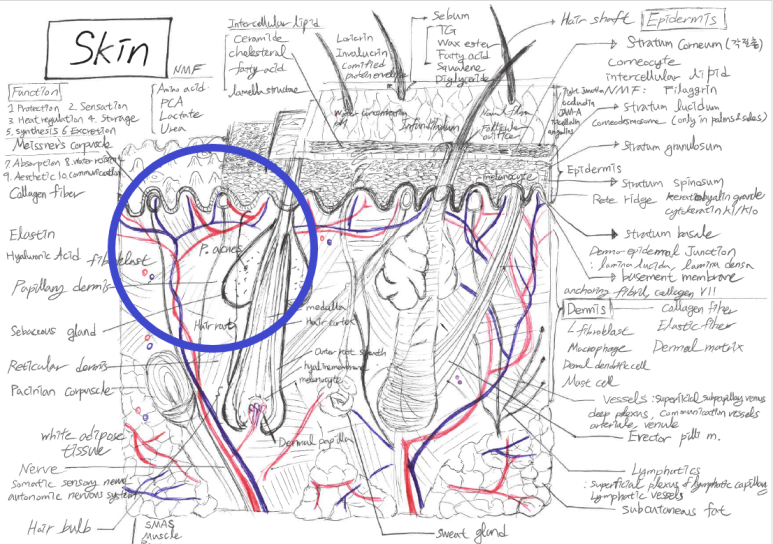 Skin
NMF
Function
1 Protection 2. Sensation
3. Heat regulation 4. Storage
5. Synthesis 6 Excretion
Meissner's corpuscle
7. Absorption 8. Water
9. Aesthetic 10. communication
Collagen fiber
Elastin
Hyaluronic Acid fibroblast
Papillary dermis
Sebaceous gland
Reticular dermis
Pacinian corpuscle
white adipose
tissue
Nerve
Somatic sensory nerve
autonomic nervous system
Hair bulb
SMAS
Muscle
Amino acid
PCA
Lactate
Urea
Intercellular lipid
Ceramide
cholesteral
fatty acid
lamella structure
Loricrin
Involucrin
Cornified
Sebum
TG
Wax ester
Fatty acid
Squalene
Diglyceride
Infundibulum
Follicular
orifice
melanocyte
P. acnes
Hair root
medulla
Hair cortex
Outer root sheath
melanocyte
Dermal papilla
sweat gland
Hair shaft
Epidermis
Stratum Corneum (각질층)
Corneocyte
intercellular lipid
NMF: Filaggrin
Tight Junction
occludin
JAM-A
Stratum lucidum
Corneodesmosome (only in palms & soles)
Stratum granulosum
Epidermis
Stratum spinosum
Rete ridge
cytokeratin K1/K10
Stratum basale
Dermo-epidermal Junction
: lamina lucida, lamina densa
basement membrane
anchoring fibril, collagen VII
Dermis
Collagen fiber
fibroblast
Elastic fiber
Macrophage
Dermal matrix
Dermal dendritic cell
Mast cell
Vessels : superficial subpapillary venus
deep plexus, communication vessels
arteriole venule
Erector pilli m.
Lymphatics
: superficial plexus of lymphatic capillary
Lymphatic vessels
Subcutaneous fat